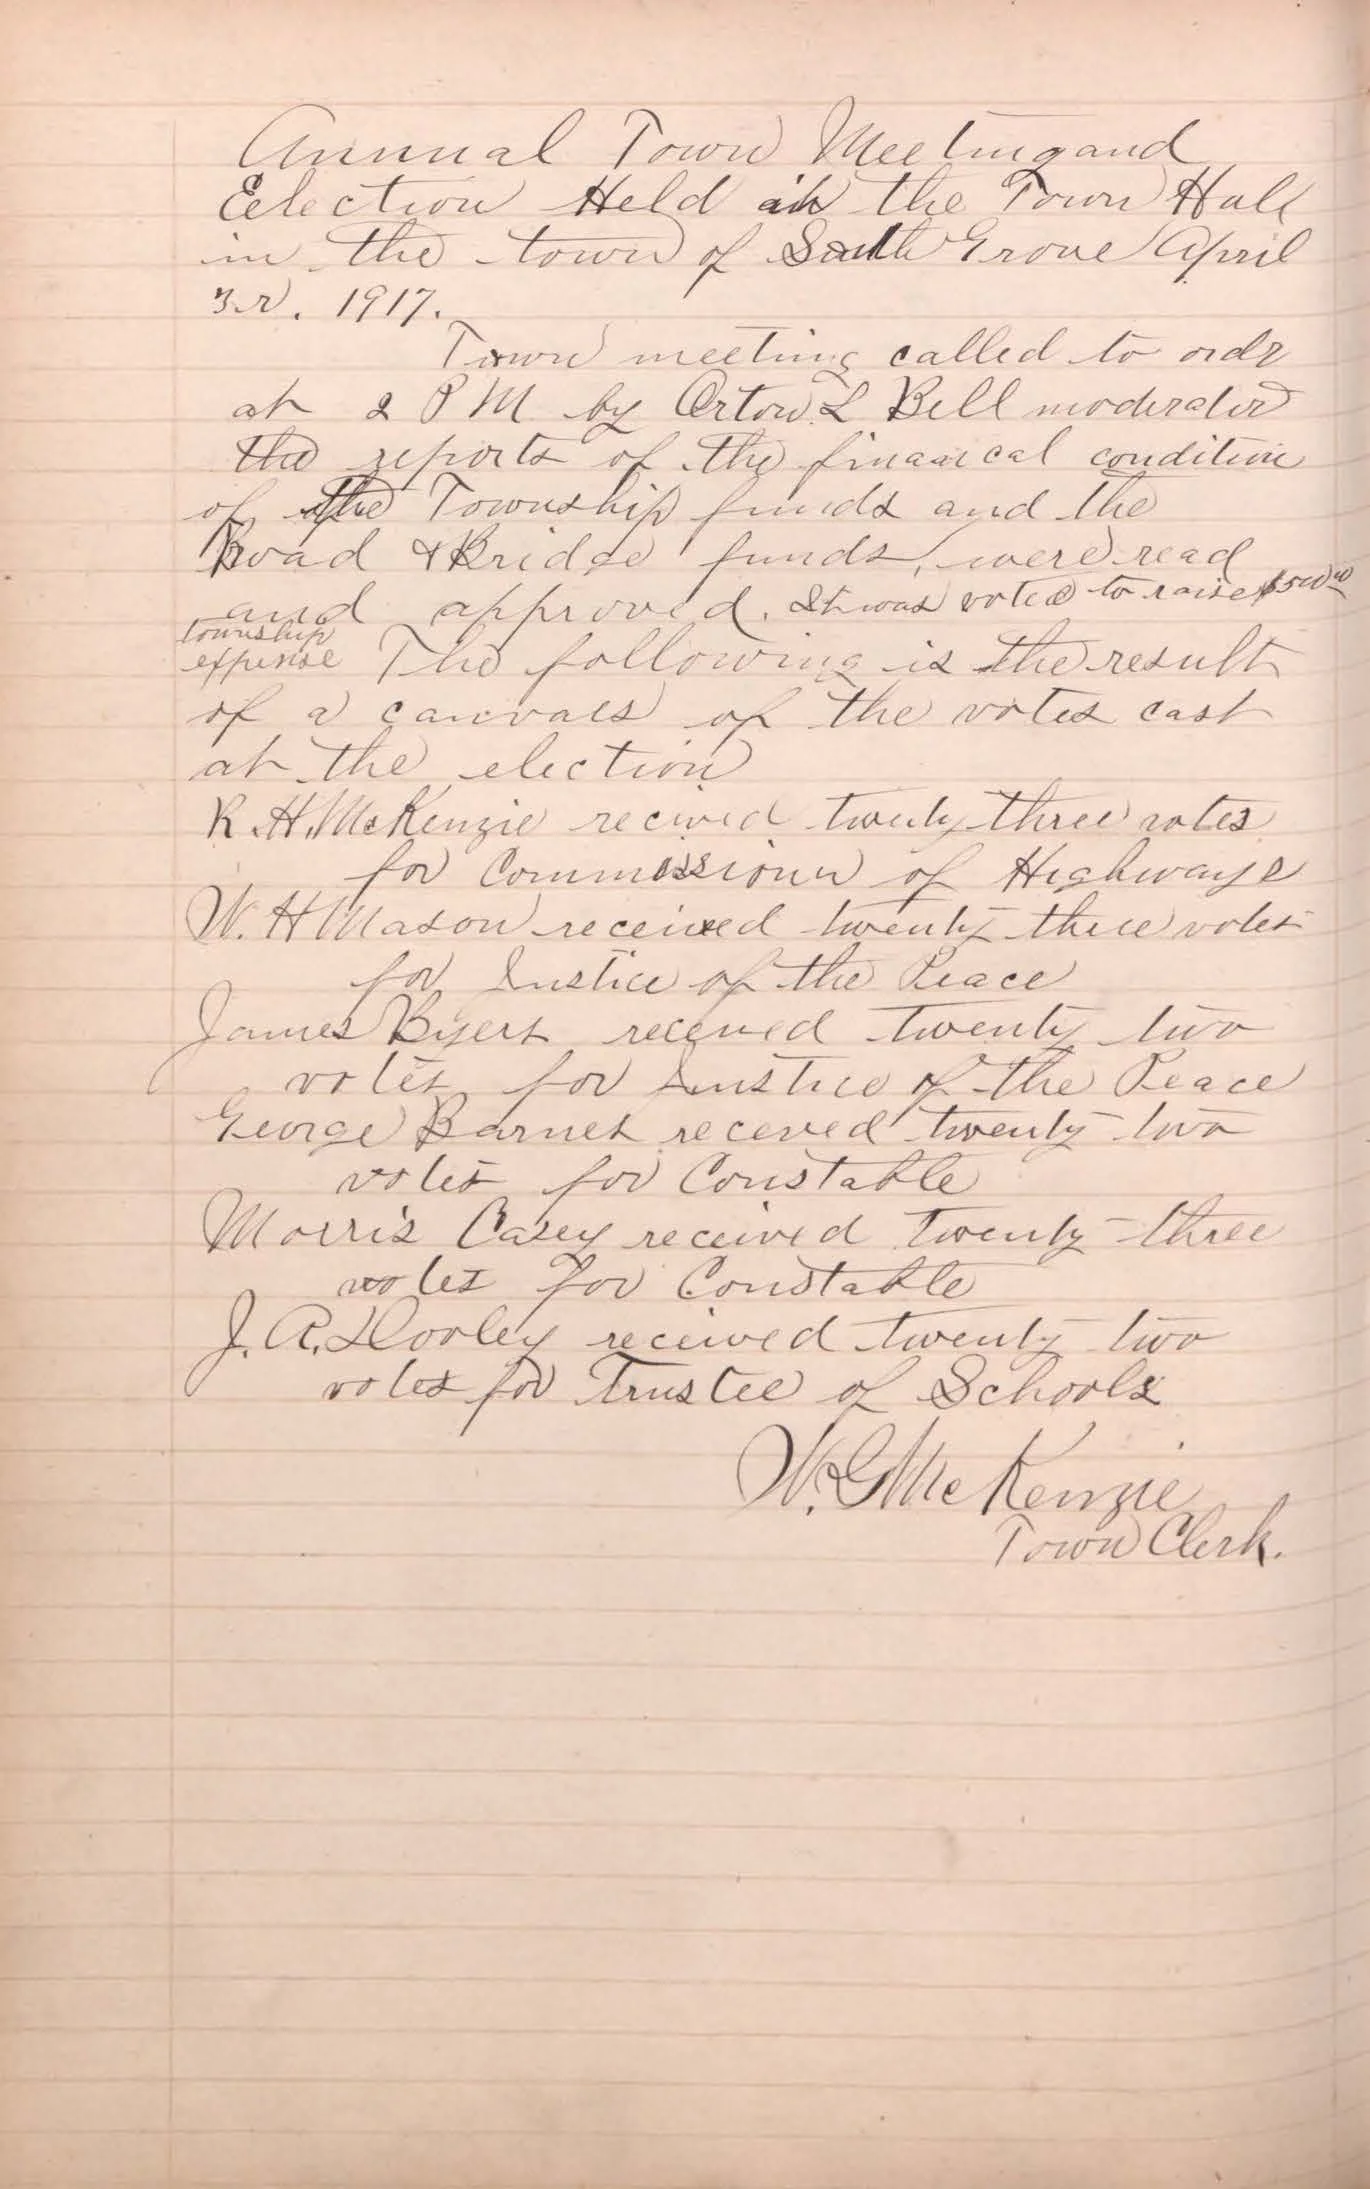 Annual Town Meeting and
Election Held in the Town Hall
in the town of South Grove April
3rd. 1917.
Town meeting called to ordr
at 2 P M by Orton L Bell moderator
the reports of the financal condition
of the Township funds and the
Road & Bridge funds, were read
and approved. It was voted to raise $500 00
township
expense The following is the result
of a canvass of the votes cast
at the election
R. H. McKenzie recived twenty three votes
for Commissioner of Highways
W. H Mason received twenty three votes
for Justice of the Peace
James Byers received twenty two
votes for Justice of the Peace
George Barnes receved twenty two
votes for Constable
Morris Casey received twenty three
votes for Constable
J. A. Dooley received twenty two
votes for Trustee of Schools
W. G McKenzie
Town Clerk.